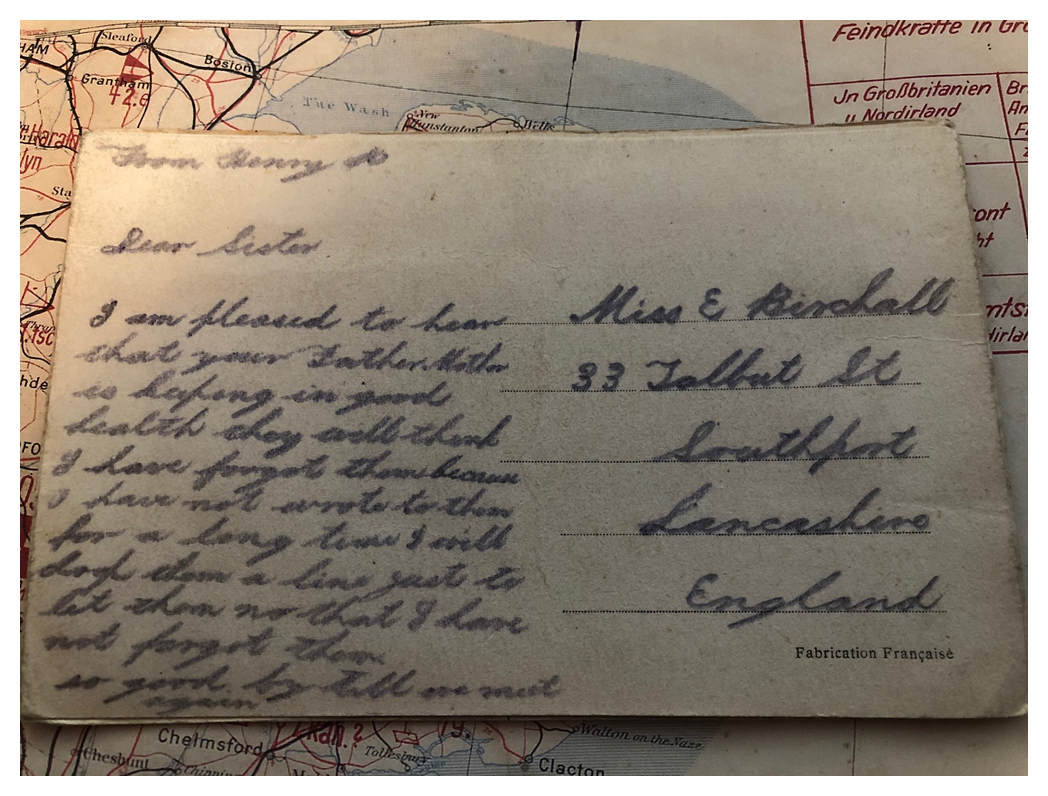 Feindkräfte in Gro
Sleaford
HAM
Boston
Grantham
The Wash
New
Hunstanton
Wells
Jn Großbritanien
u Nordirland
Br
An
F
Harald
lyn
Sta
ont
ht
mtst
dirla
hde
FO
From Henry
Dear Sister
I am pleased to hear
that your Father.Mother
is keeping in good
health they will think
I have forgot them because
I have not wrote to them
for a long time I will
drop them a line just to
let them no that I have
not forgot them.
so good by till we meet
again
Miss E Birchall
33 Talbut St
Southport
Lancashire
England
Fabrication Française
Chelmsford
Cheshunt
Chippin
Tollesbury
Walton on the Naze
Clacton